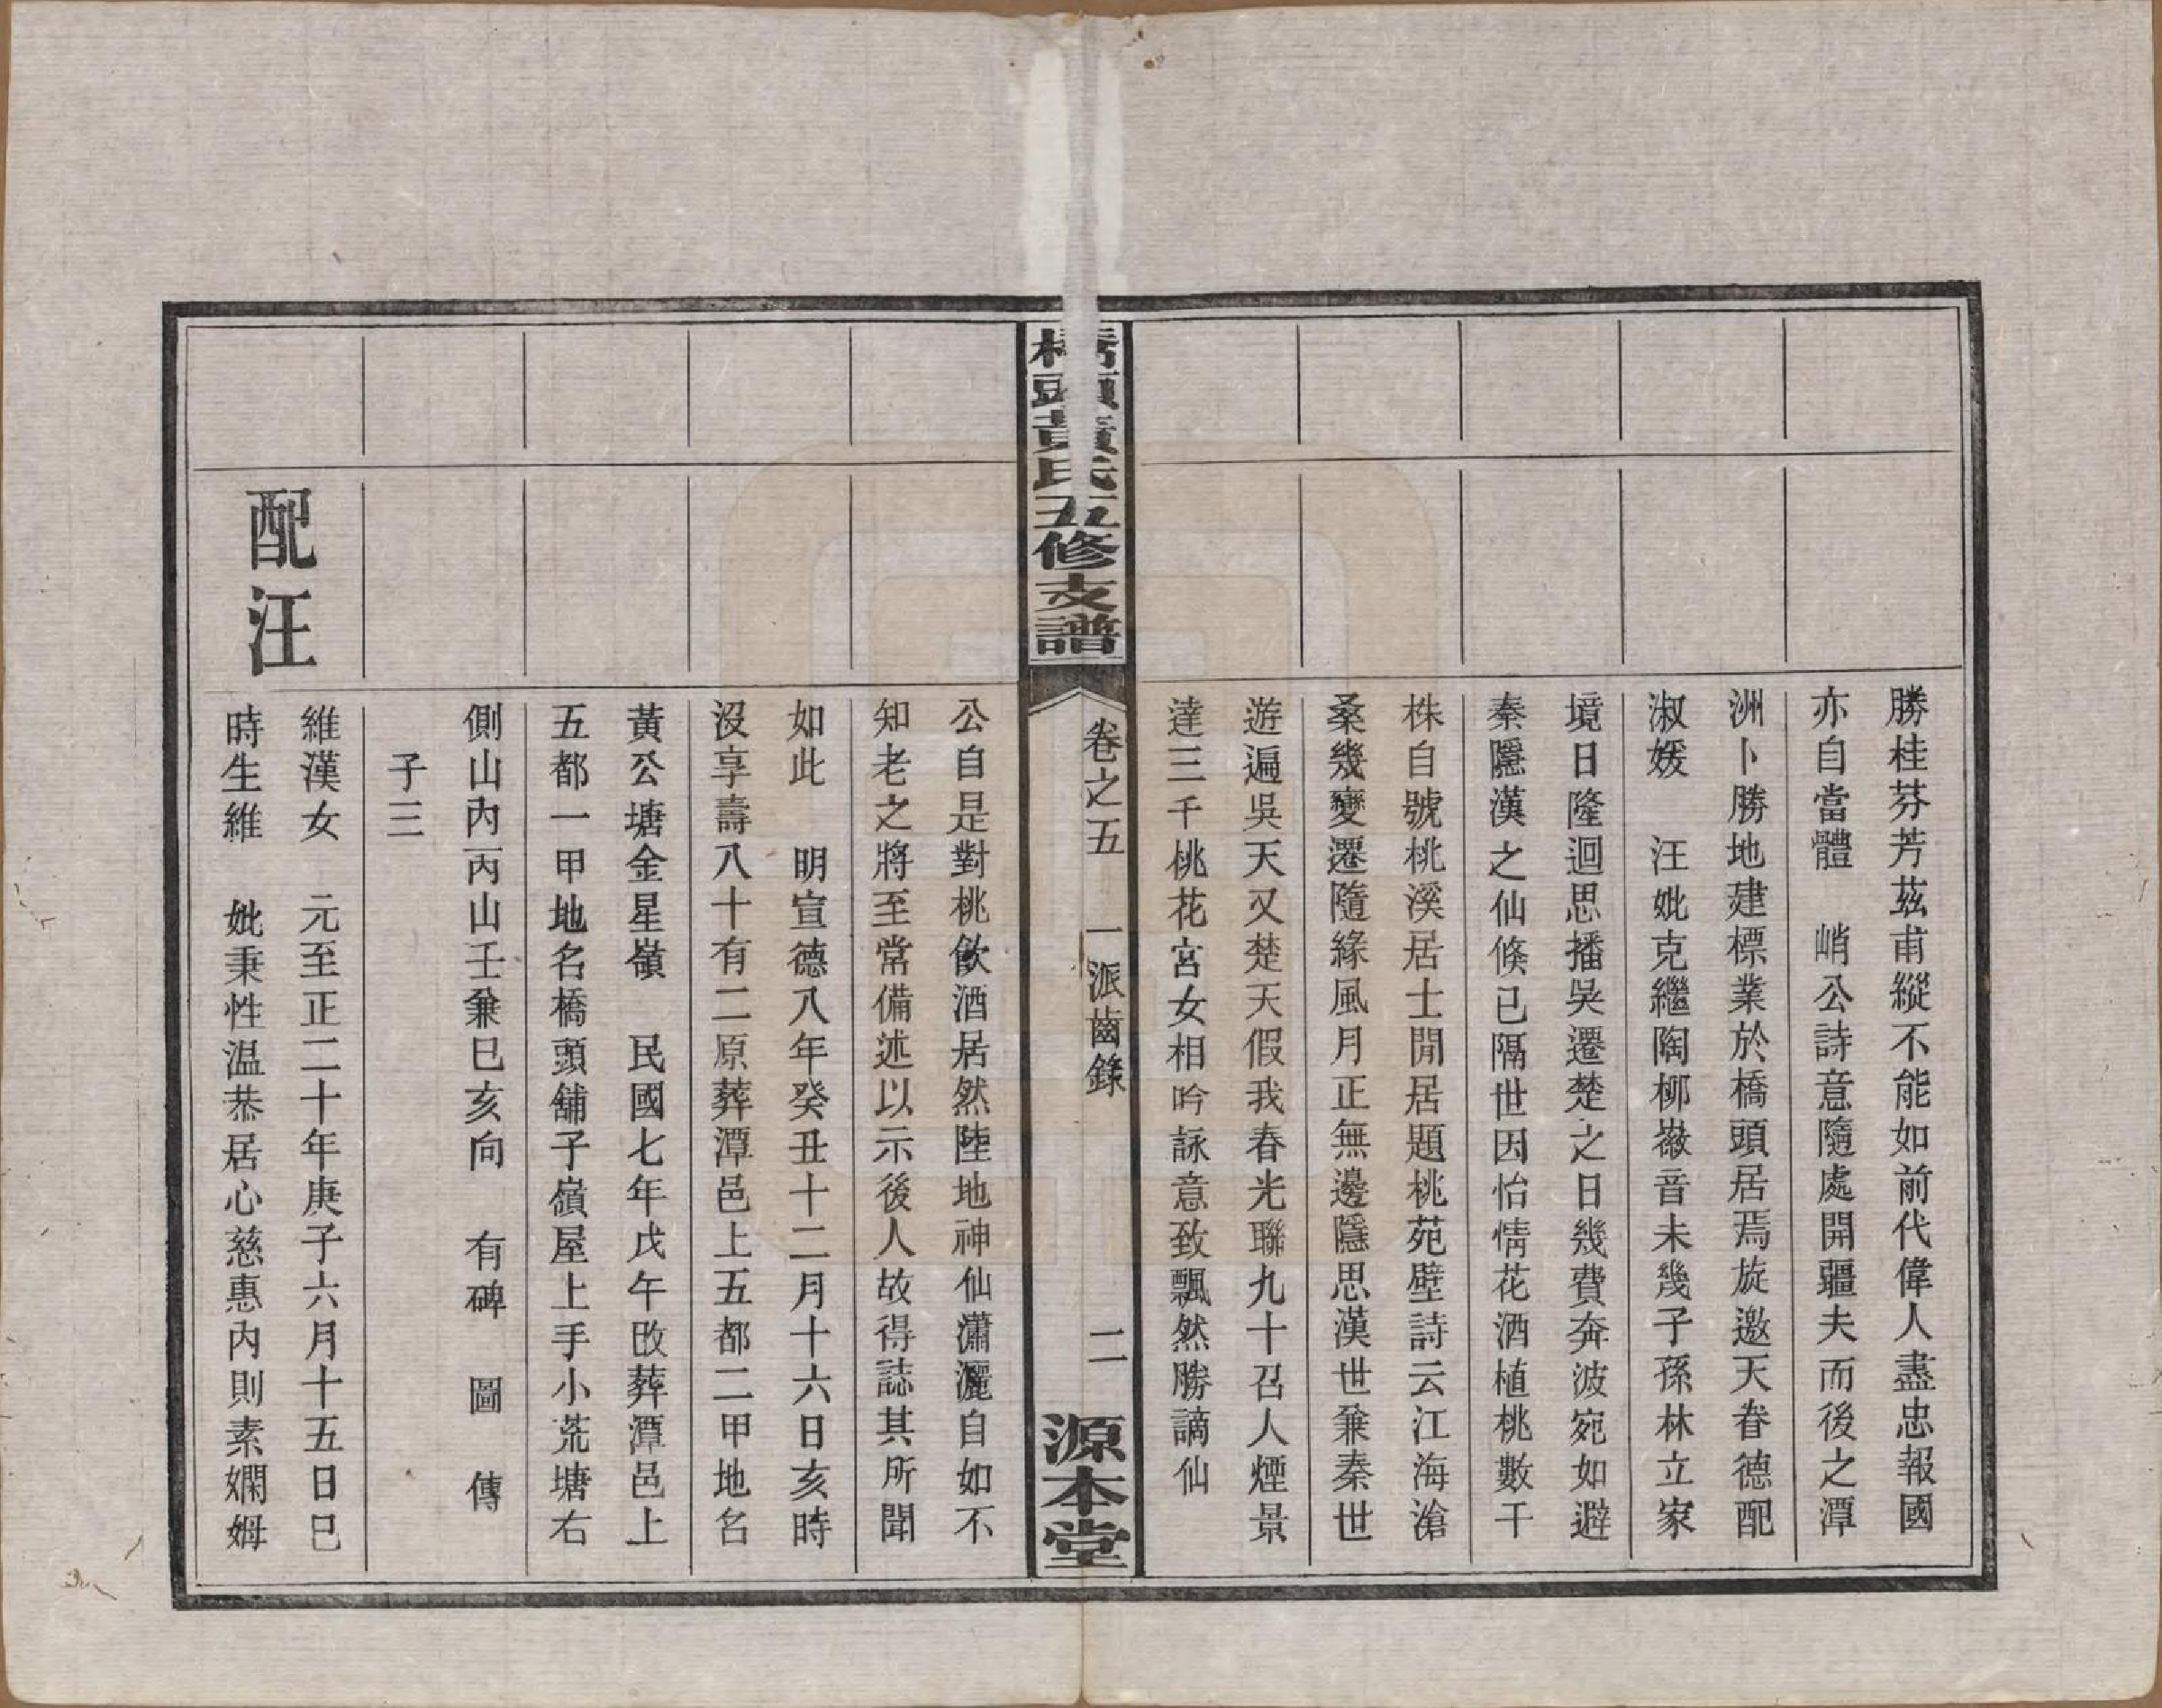 勝桂芬芳茲甫縱不能如前代偉人盡忠報國
亦自當體　峭公詩意隨處開疆夫而後之潭
洲卜勝地建標業於橋頭居焉旋邀天眷德配
淑媛　汪妣克繼陶柳嶶音未幾子孫林立家
境日隆迴思播吳遷楚之日幾費奔波宛如避
秦隱漢之仙倐已隔世因怡情花酒植桃數千
株自號桃溪居士閒居題桃苑壁詩云江海滄
桑幾變遷隨緣風月正無邊隱思漢世兼秦世
遊遍吳天又楚天假我春光聯九十召人煙景
達三千桃花宮女相吟詠意致飄然勝謫仙
橋頭黃氏五修支譜
卷之五　一派齒錄　二
源本堂
公自是對桃飲酒居然陸地神仙瀟灑自如不
知老之將至常備述以示後人故得誌其所聞
如此　明宣德八年癸丑十二月十六日亥時
沒享壽八十有二原葬潭邑上五都二甲地名
黃公塘金星嶺　民國七年戊午改葬潭邑上
五都一甲地名橋頭舖子嶺屋上手小荒塘右
側山內丙山壬兼巳亥向　有碑　圖　傳
子三
配汪
維漢女　元至正二十年庚子六月十五日巳
時生維　妣秉性温恭居心慈惠內則素嫻姆